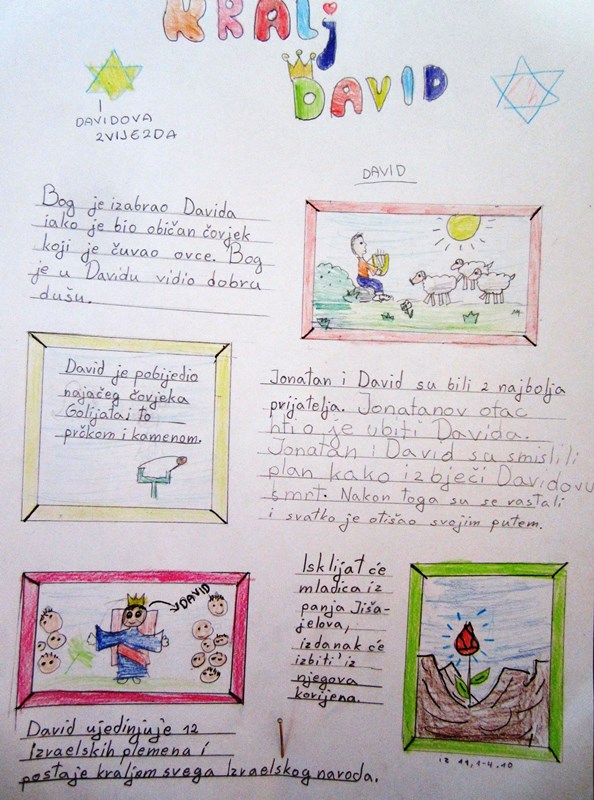 KRALJ
DAVID
DAVIDOVA
ZVIJEZDA
DAVID
Bog je izabrao Davida
iako je bio običan čovjek
koji je čuvao ovce. Bog
je u Davidu vidio dobru
dušu.
David je pobijedio
najačeg čovjeka
Golijata i to
prčkom i kamenom.
Jonatan i David su bili 2 najbolja
prijatelja. Jonatanov otac
htio je ubiti Davida.
Jonatan i David su smislili
plan kako izbječi Davidovu
smrt. Nakon toga su se rastali
i svatko je otišao svojim putem.
DAVID
David ujedinjuje 12
Izraelskih plemena i
postaje kraljem svega Izraelskog naroda.
Isklijat će
mladica iz
panja Jiša-
jelova,
izdanak će
izbiti iz
njegova
korijena.
Iz 11, 1-4.10